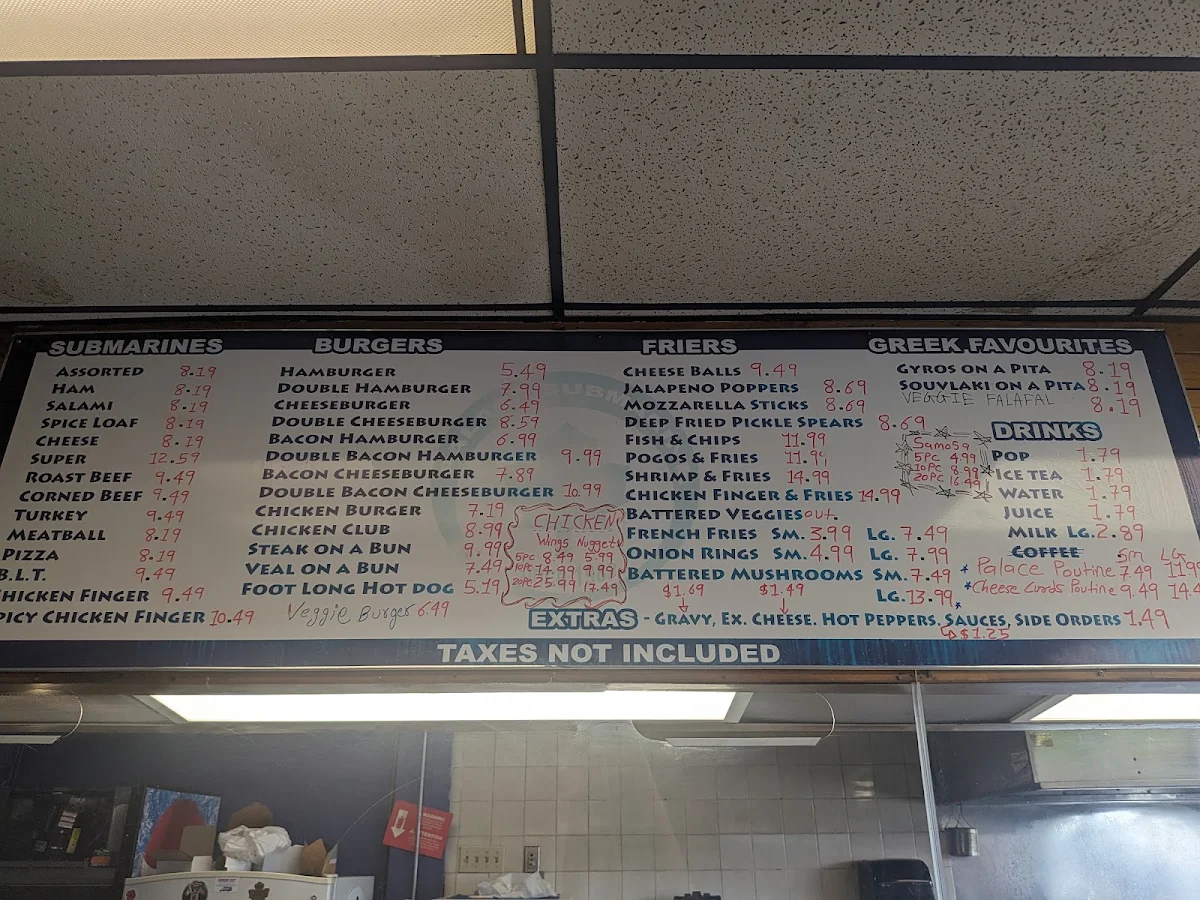 SUBMARINES
ASSORTED 8.19
HAM 8.19
SALAMI 8.19
SPICE LOAF 8.19
CHEESE 8.19
SUPER 12.59
ROAST BEEF 9.49
CORNED BEEF 9.49
TURKEY 9.49
MEATBALL 8.19
PIZZA 8.19
B.L.T. 9.49
CHICKEN FINGER 9.49
PICY CHICKEN FINGER 10.49
BURGERS
HAMBURGER 5.49
DOUBLE HAMBURGER 7.99
CHEESEBURGER 6.49
DOUBLE CHEESEBURGER 8.59
BACON HAMBURGER 6.99
DOUBLE BACON HAMBURGER 9.99
BACON CHEESEBURGER 7.89
DOUBLE BACON CHEESEBURGER 10.99
CHICKEN BURGER 7.19
CHICKEN CLUB 8.99
STEAK ON A BUN 9.99
VEAL ON A BUN 7.49
FOOT LONG HOT DOG 5.19
Veggie Burger 6.49
CHICKEN
Wings Nuggets
5pc 8.49 5.99
10pc 14.99 9.99
20pc 25.99 17.49
FRIERS
CHEESE BALLS 9.49
JALAPENO POPPERS 8.69
MOZZARELLA STICKS 8.69
DEEP FRIED PICKLE SPEARS 8.69
FISH & CHIPS 11.99
POGOS & FRIES 11.99
SHRIMP & FRIES 14.99
CHICKEN FINGER & FRIES 14.99
BATTERED VEGGIES out.
FRENCH FRIES SM. 3.99 LG. 7.49
ONION RINGS SM. 4.99 LG. 7.99
BATTERED MUSHROOMS SM. 7.49
LG. 13.99
GREEK FAVOURITES
GYROS ON A PITA 8.19
SOUVLAKI ON A PITA 8.19
VEGGIE FALAFAL 8.19
Samosa
5pc 4.99
10pc 8.99
20pc 16.49
DRINKS
POP 1.79
ICE TEA 1.79
WATER 1.79
JUICE 1.79
MILK LG. 2.89
COFFEE
SM LG
* Palace Poutine 7.49 11.99
* Cheese Curds Poutine 9.49 14.4
$1.69 $1.49
EXTRAS - GRAVY, EX. CHEESE, HOT PEPPERS, SAUCES, SIDE ORDERS 1.49
$1.25
TAXES NOT INCLUDED